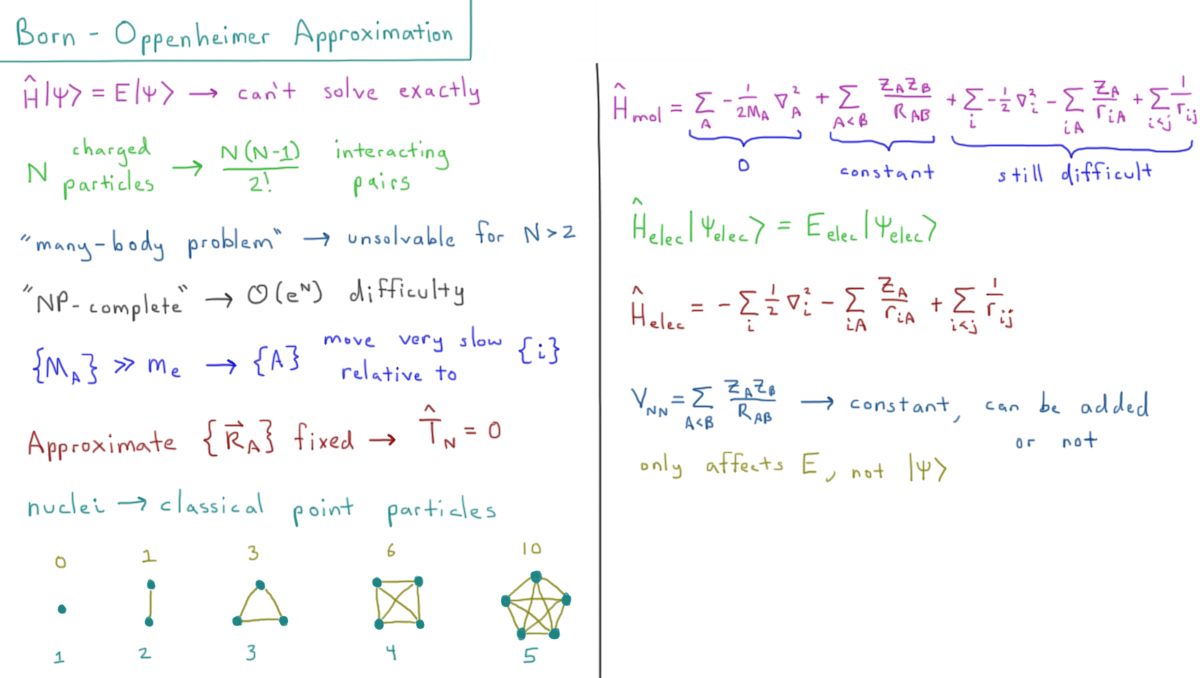 Born - Oppenheimer Approximation
Ĥ|Ψ⟩ = E|Ψ⟩ → can't solve exactly
N charged particles → N(N-1)/2! interacting pairs
"many-body problem" → unsolvable for N>2
"NP-complete" → O(eᴺ) difficulty
{M_A} ≫ mₑ → {A} move very slow relative to {i}
Approximate {R⃗_A} fixed → T̂_N = 0
nuclei → classical point particles
0 1 3 6 10
1 2 3 4 5
Ĥ_mol = Σ_A -1/2M_A ∇²_A + Σ_A<B Z_A Z_B/R_AB + Σ_i -1/2 ∇²_i - Σ_iA Z_A/r_iA + Σ_i<j 1/r_ij
0 constant still difficult
Ĥ_elec|Ψ_elec⟩ = E_elec|Ψ_elec⟩
Ĥ_elec = - Σ_i 1/2 ∇²_i - Σ_iA Z_A/r_iA + Σ_i<j 1/r_ij
V_NN = Σ_A<B Z_A Z_B/R_AB → constant, can be added
or not
only affects E, not |Ψ⟩